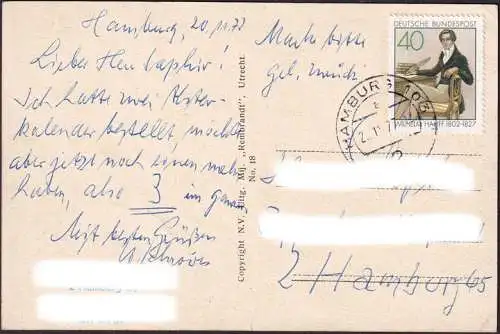 Hamburg, 20.11.77
Lieber Herr
Ich hatte zwei
kalender bestellt, möchte
aber jetzt noch einen mehr
haben, also 3 im ganzen
Mit besten Grüßen
Marke bitte
gel. zurück
Copyright N.V. Uitg. Mij. „Rembrandt", Utrecht.
No. 18
DEUTSCHE BUNDESPOST
40
WILHELM HAUFF 1802-1827
HAMBURG
2 Hamburg 65